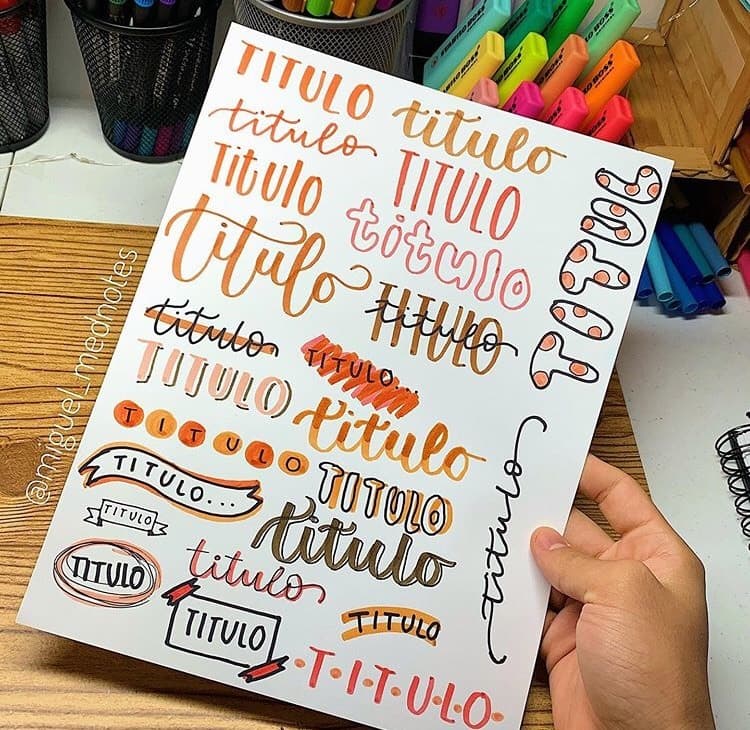 STABILO BOSS
TITULO
titulo
titulo
TITULO
TITULO
titulo
titulo
TITULO
titulo
titulo
TITULO...
TITULO
titulo
TITULO
TITULO...
TITULO
TITULO
titulo
TITULO
titulo
TITULO
TITULO
T·I·T·U·L·O
titulo
@miguel_mednotes